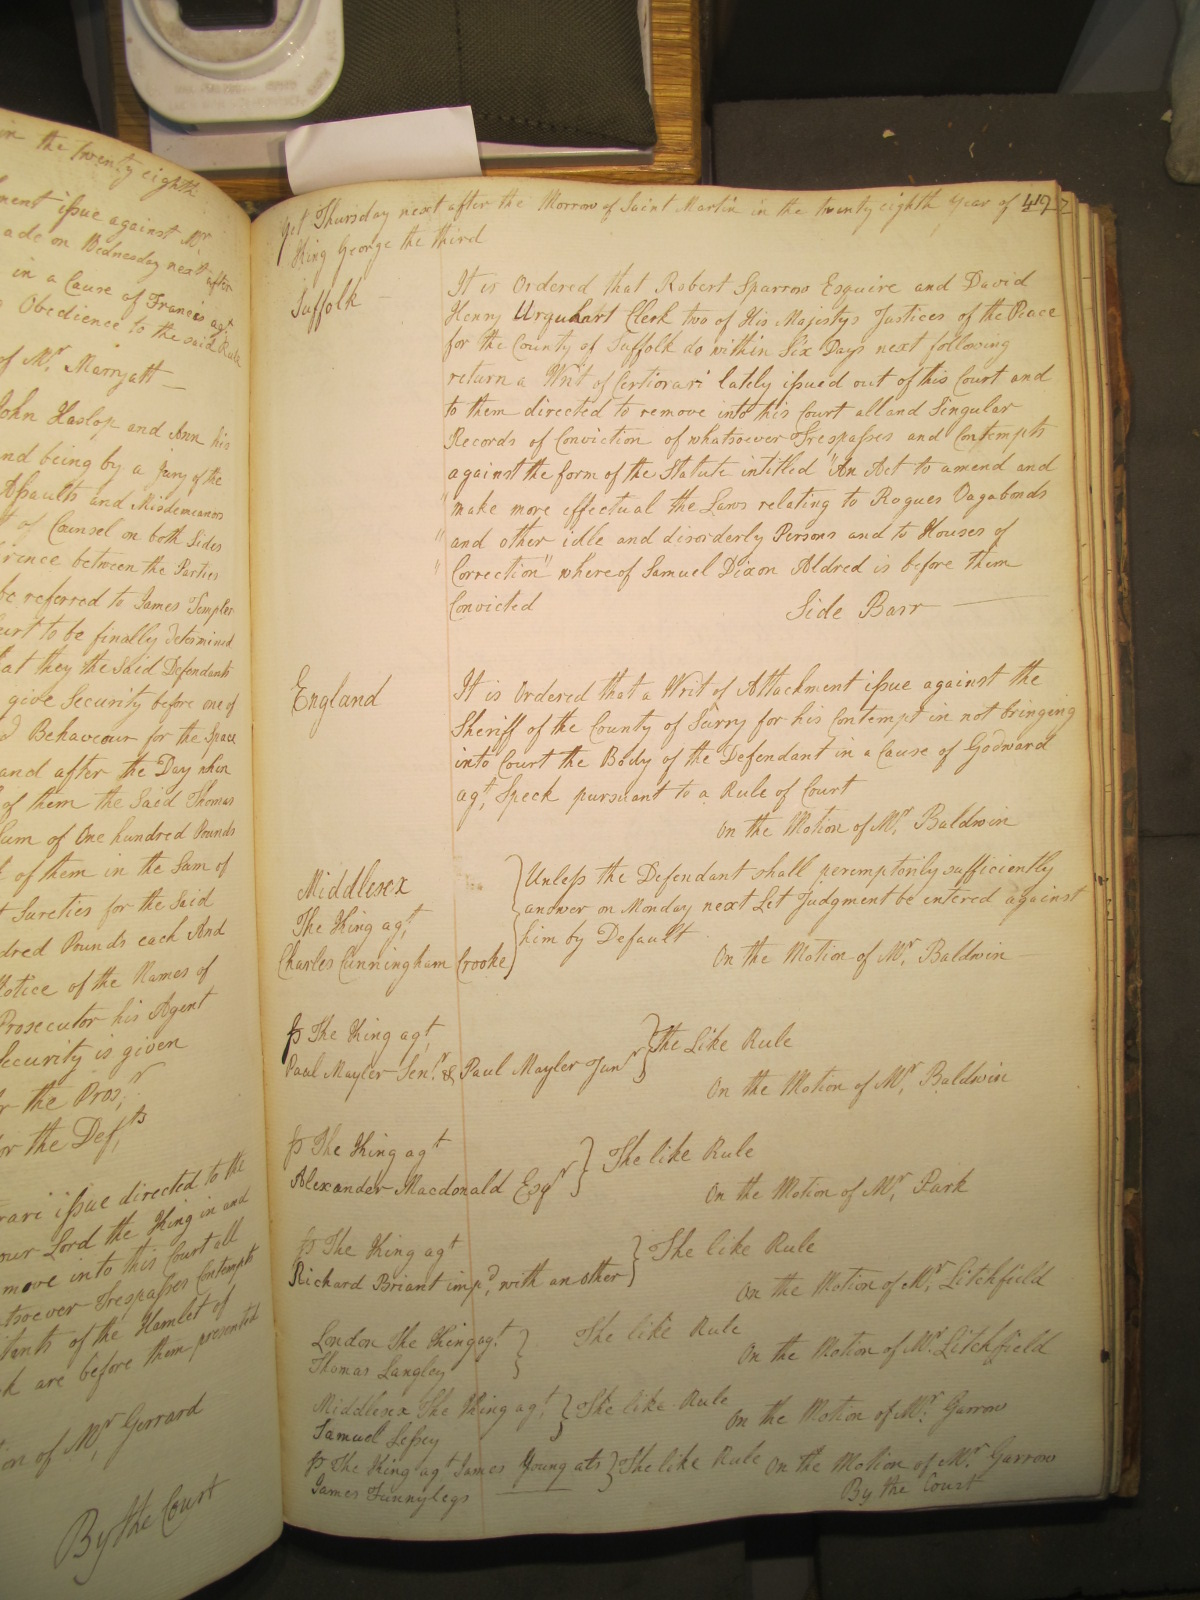 in the twenty eighth
ment issue against Mr
ade on Wednesday next after
in a Cause of Francis agt
Obedience to the said Rule
of Mr. Marryatt
John Haslop and Ann his
nd being by a Jury of the
Assaults and Misdemeanors
of Counsel on both Sides
rence between the Parties
be referred to James Templer
ourt to be finally determined
at they the Said Defendants
give Security before one of
d Behaveour for the Space
and after the Day when
of them the Said Thomas
Sum of One hundred Pounds
of them in the Sum of
Sureties for the Said
dred Pounds each And
Notice of the Names of
Prosecutor his Agent
Security is given
r the Prosr
or the Defts
rari issue directed to the
our Lord the King in and
move into this Court all
atsoever Trespasses Contempts
itants of the Hamlet of
are before them presented
on of Mr Gerrard
By the Court
Yet Thursday next after the Morrow of Saint Martin in the twenty eighth Year of 417
King George the third
Suffolk
It is Ordered that Robert Sparrow Esquire and David
Henry Urquhart Clerk two of His Majestys Justices of the Peace
for the County of Suffolk do within Six Days next following
return a Writ of Certiorari lately issued out of this Court and
to them directed to remove into his Court all and Singular
Records of Conviction of whatsoever Trespasses and Contempts
against the form of the Statute intitled "An Act to amend and
" make more effectual the Laws relating to Rogues Vagabonds
" and other idle and disorderly Persons and to Houses of
" Correction" whereof Samuel Dixon Aldred is before them
Convicted Side Barr
England
It is Ordered that a Writ of Attachment issue against the
Sheriff of the County of Surry for his Contempt in not bringing
into Court the Body of the Defendant in a Cause of Godward
agt, Speck pursuant to a Rule of Court
On the Motion of Mr, Baldwin
Middlesex
The King agt,
Charles Cunningham Crooke
Unless the Defendant shall peremptorily sufficiently
answer on Monday next Let Judgment be entered against
him by Default
On the Motion of Mr, Baldwin
The King agt,
Paul Mayler Senr. & Paul Mayler Junr } The Like Rule
On the Motion of Mr, Baldwin
The King agt
Alexander Macdonald Esqr } The like Rule
On the Motion of Mr, Park
The King agt
Richard Briant impd, with another } The like Rule
On the Motion of Mr, Litchfield
London The King agt. } The like Rule
Thomas Langley
On the Motion of Mr. Litchfield
Middlesex The King agt, } The like Rule
Samuel Lessey
On the Motion of Mr. Garrow
The King agt James Young ats } The like Rule On the Motion of Mr. Garrow
James Funnylegs
By the Court